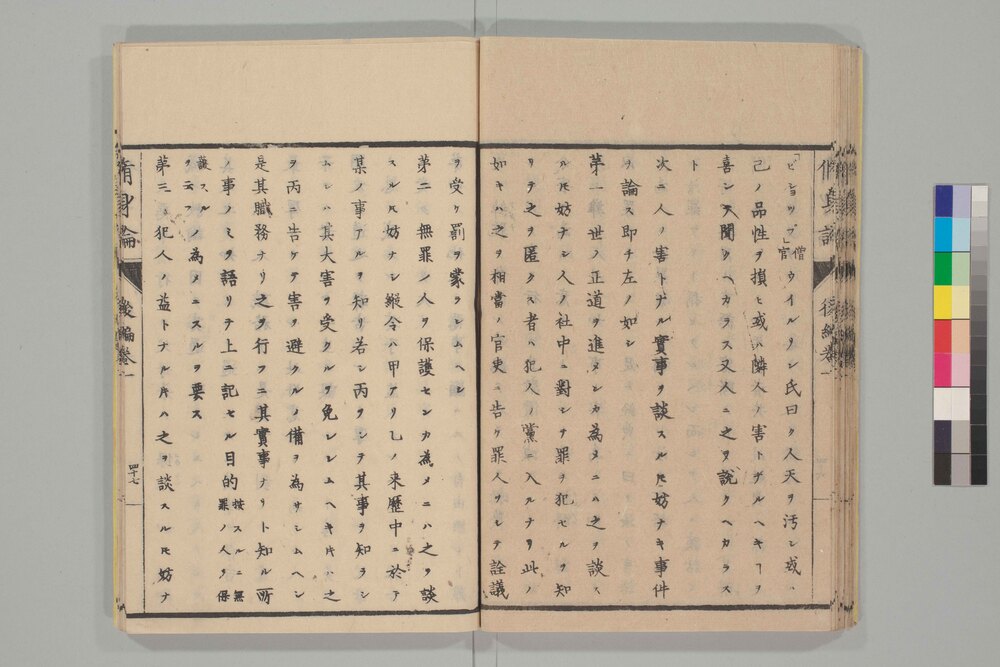 「ビショップ」僧官ウイルソン氏曰ク人天ヲ汚シ或ハ
己ノ品性ヲ損ヒ或ハ隣人ノ害トナルヘキヿヲ
喜ンテ聞クヘカラス又人ニ之ヲ說クヘカラス
ト
次ニ人ノ害トナル實事ヲ談スルモ妨ナキ事件
ヲ論ス即チ左ノ如シ
第一世ノ正道ヲ進メンカ為メニハ之ヲ談ス
ルモ妨ナシ人ノ社中ニ對シテ罪ヲ犯セルヲ知
リテ之ヲ匿クス者ハ犯人ノ黨ニ入ルナリ此ノ
如キハ之ヲ相當ノ官吏ニ告ケ罪人ヲシテ詮議
ヲ受ケ罰ヲ蒙ラシムヘシ
第二無罪ノ人ヲ保護センカ為メニハ之ヲ談
スルモ妨ナシ縱令ハ甲アリ乙ノ来歷中ニ於テ
某ノ事アルヲ知リ若シ丙ヲシテ其事ヲ知ラシ
ムレハ其大害ヲ受クルヲ免レシムヘキ片ハ之
ヲ丙ニ告ケテ害ヲ避クルノ備ヲ為サシムヘシ
是其職務ナリ之ヲ行フニ其實事ナリト知ル所
ノ事ノミヲ語リテ上ニ記セル目的按スルニ無罪ノ人ヲ保
護スルヲ云フノ為メニスルヲ要ス
第三犯人ノ利益トナル片ハ之ヲ談スルモ妨ナ
脩身論
後編卷一
四十七